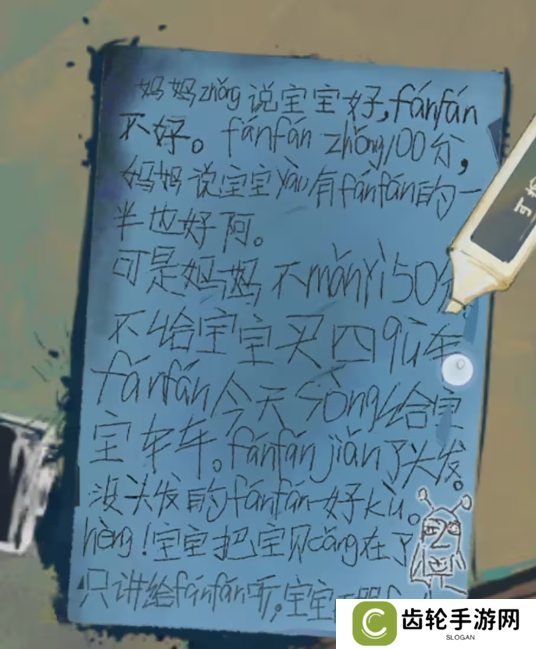 妈妈zhǒng说宝宝好,fánfán
不好。fánfán zhǒng100分,
妈妈说宝宝yàu有fánfán的一
半也好阿。
可是妈妈不mǎnyì50分
不给宝宝买四qū车
fánfán今天sòng给宝
宝车车。fánfán jiǎn了头发。
没头发的fánfán一好kù。
hèng!宝宝把宝贝cáng在了
只讲给fánfán听,宝宝
齿轮手游网
SLOGAN